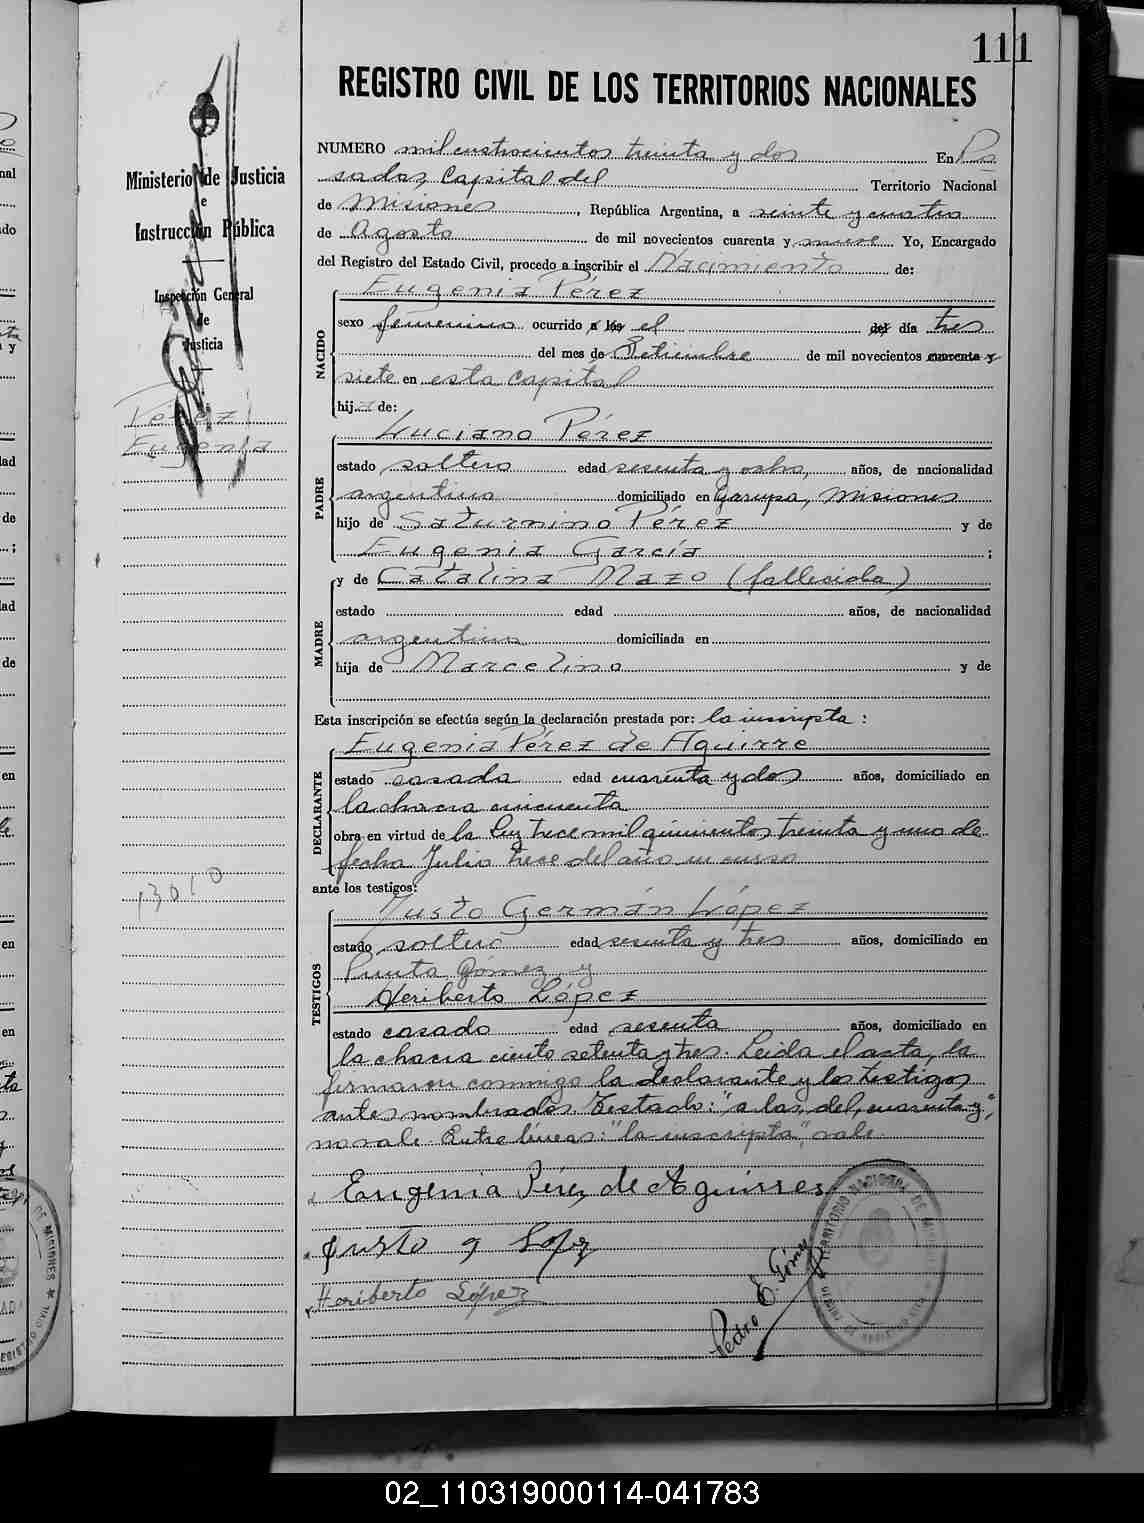 111
REGISTRO CIVIL DE LOS TERRITORIOS NACIONALES
Ministerio de Justicia
e
Instrucción Pública
Inspección General
de
Justicia
Pérez
Eugenia
13010
NUMERO mil cuatrocientos treinta y dos En Po
sadas, Capital del Territorio Nacional
de Misiones, República Argentina, a veinte y cuatro
de Agosto de mil novecientos cuarenta y nueve Yo, Encargado
del Registro del Estado Civil, procedo a inscribir el Nacimiento de:
NACIDO
Eugenia Pérez
sexo femenino ocurrido a los el del día tres
del mes de Setiembre de mil novecientos cuarenta y
siete en esta capital
hija de:
PADRE
Luciano Pérez
estado soltero edad sesenta y ocho, años, de nacionalidad
argentino domiciliado en Garupa, Misiones
hijo de Saturnino Pérez y de
Eugenia García ;
MADRE
y de Catalina Mazo (fallecida)
estado edad años, de nacionalidad
argentina domiciliada en
hija de Marcelino y de
Esta inscripción se efectúa según la declaración prestada por: la inscripta :
DECLARANTE
Eugenia Pérez de Aguirre
estado casada edad cuarenta y dos años, domiciliado en
la chacra cincuenta
obra en virtud de la Ley trece mil quinientos treinta y uno de
fecha Julio trece del año en curso
ante los testigos:
TESTIGOS
Justo Germán López
estado soltero edad sesenta y tres años, domiciliado en
Punta Gómez y
Heriberto López
estado casado edad sesenta años, domiciliado en
la chacra ciento setenta y tres. Leida el acta, la
firmaron conmigo la declarante y los testigos
antes nombrados. Testado: "a los, del, cuarenta y",
no vale. Entre líneas: "la inscripta", vale.
Eugenia Pérez de Aguirres
Justo g López
Heriberto López
Pedro E. Gómez
TERRITORIO NACIONAL DE MISIONES
02_110319000114-041783